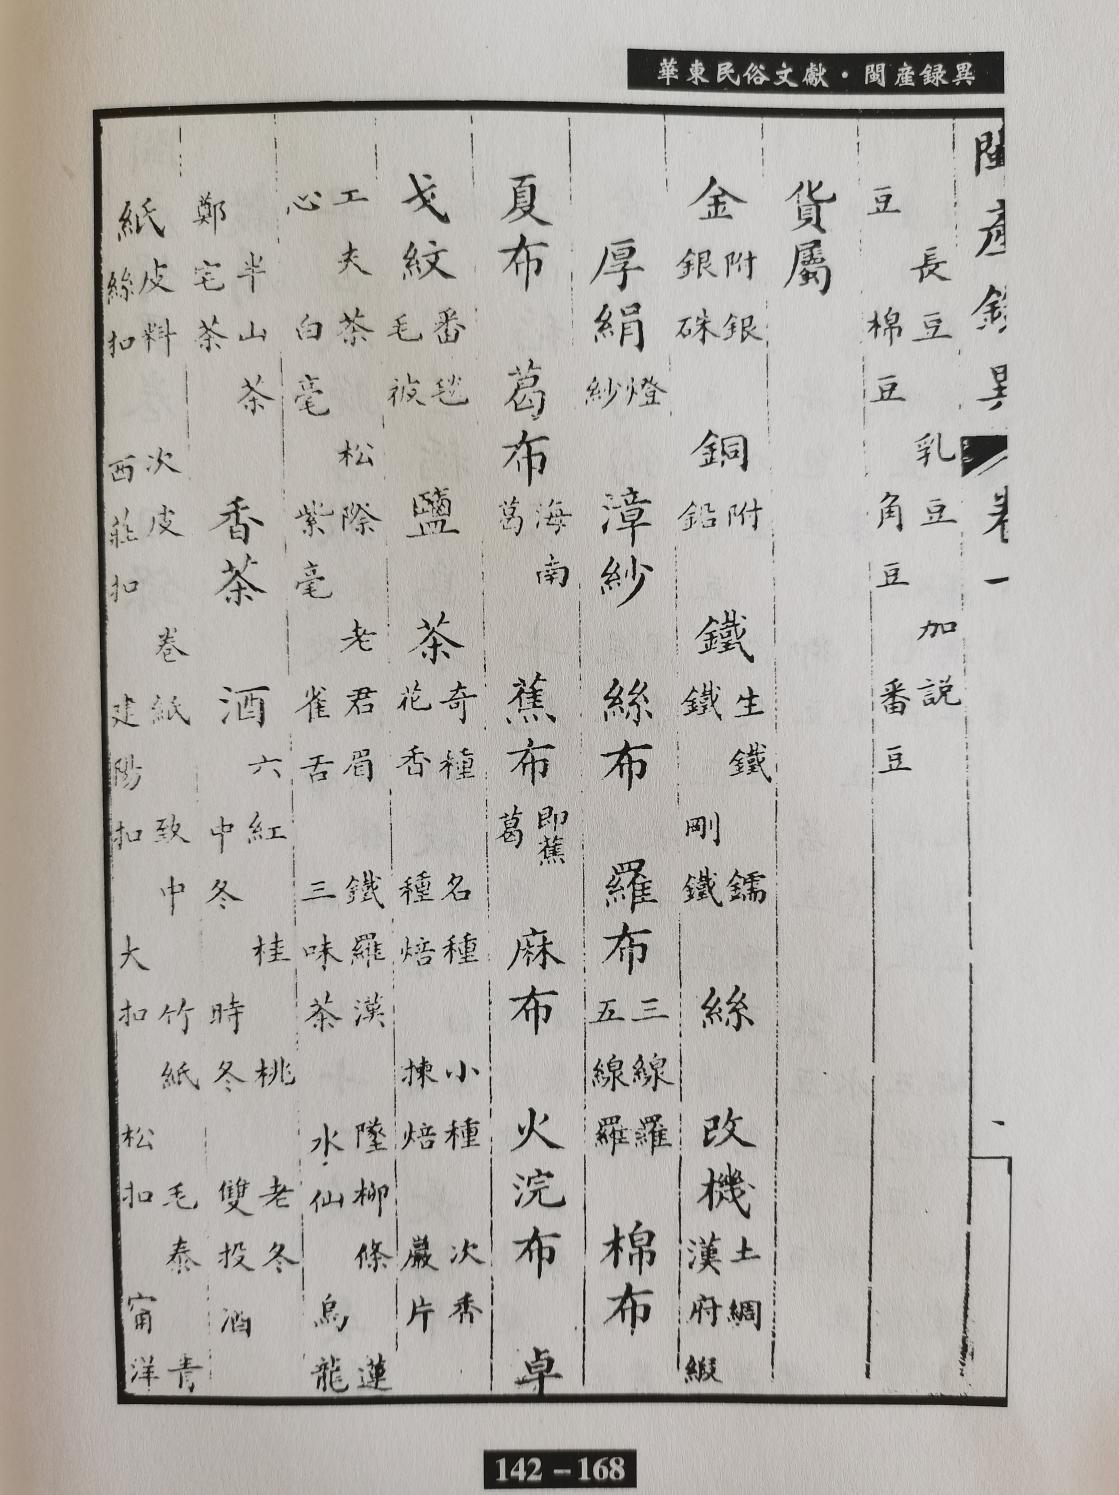 華東民俗文獻·閩產録異
閩產錄異 卷一 一
豆 長豆 乳豆 加說
棉豆 角豆 番豆
貨屬
金 附銀 銀硃 銅 附鉛 鐵 生鐵 鐵 鑐 剛鐵 絲 改機 土綢 漢府緞
厚絹 燈紗 漳紗 絲布 羅布 三線羅 五線羅 棉布
夏布 葛布 海南葛 蕉布 即蕉葛 麻布 火浣布 卓
戈紋 番毯 毛被 鹽 茶 奇種 名種 小種 次香
花香 種焙 揀焙 巖片
工夫茶 松際 老君眉 鐵羅漢 墜柳條 蓮
心 白毫 紫毫 雀舌 三味茶 水仙 烏龍
半山茶
鄭宅茶 香茶 酒 六紅 桂 桃 老冬
中冬 時冬 雙投酒
紙 皮料 次皮 卷紙 致中 竹紙 毛泰 青
絲扣 西莊扣 建陽扣 大扣 松扣 甯洋
142－168